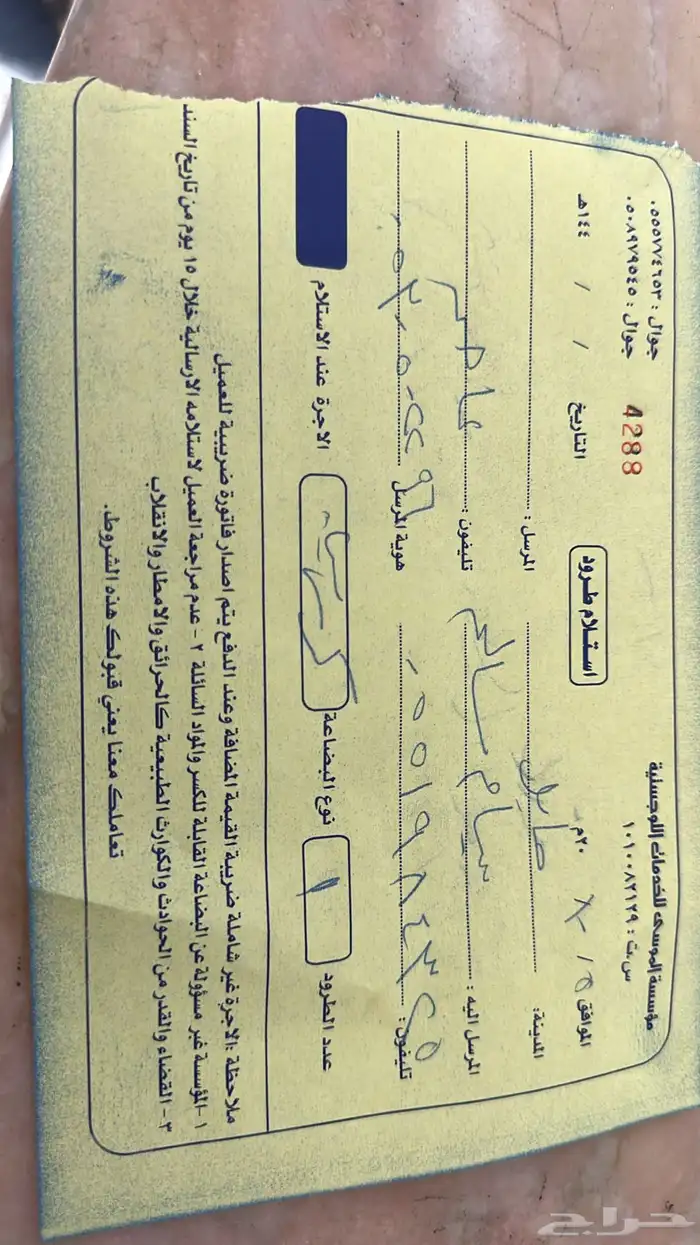 مؤسسة الموسى للخدمات اللوجستية
س.ت : ١٠١٠٠٨٢١٢٩
جوال : ٠٥٥٥٧٧٤٦٥٣
جوال : ٠٥٠٨٩٧٩٥٤٥
4288
استلام طرود
التاريخ / / ١٤٤هـ
الموافق ٥ / ٨ ٢٠م
المدينة: حايل
المرسل :
المرسل اليه : سالم
تليفون :
تليفون: ٠٥٥١٩٨٤٣٢٥
هوية المرسل
عدد الطرود ١ نوع البضاعة الاجرة عند الاستلام
ملاحظة :الاجرة غير شاملة ضريبة القيمة المضافة وعند الدفع يتم اصدار فاتورة ضريبية للعميل
١ -المؤسسة غير مسؤولة عن البضاعة القابلة للكسر والمواد السائلة ٢ - عدم مراجعة العميل لاستلامه الارسالية خلال ١٥ يوم من تاريخ السند
٣ - القضاء والقدر من الحوادث والكوارث الطبيعية كالحرائق والامطار والانقلاب
تعاملك معنا يعني قبولك هذه الشروط.
حراج